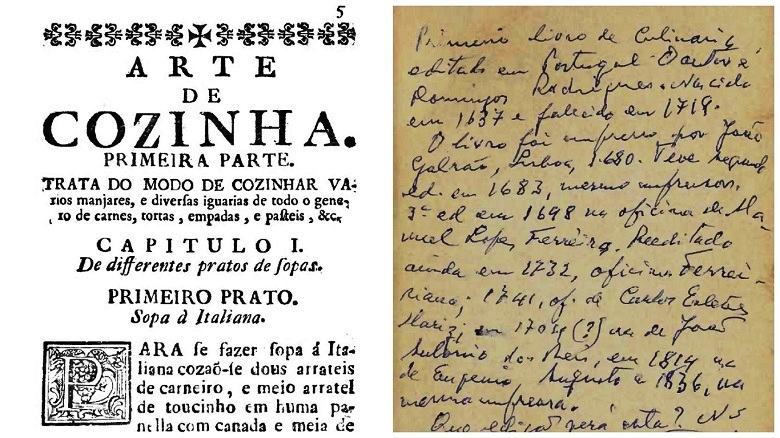 5
ARTE
DE
COZINHA.
PRIMEIRA PARTE.
TRATA DO MODO DE COZINHAR VA-
rios manjares, e diversas iguarias de todo o gene-
ro de carnes, tortas, empadas, e pasteis, &c.
CAPITULO I.
De differentes pratos de sopas.
PRIMEIRO PRATO.
Sopa á Italiana.
PARA se fazer sopa á Ita-
liana cozaõ-se dous arrateis
de carneiro, e meio arratel
de toucinho em huma pa-
nella com canada e meia de
Primeiro livro de Culinaria
editado em Portugal. O autor é
Domingos Rodrigues. Nascido
em 1637 e falecido em 1719.
O livro foi impresso por João
Galrão, Lisboa, 1680. Teve segunda
ed. em 1683, mesmo impressor.
3ª ed em 1698 na oficina de Ma-
nuel Lopes Ferreira. Reeditado
ainda em 1732, oficina Ferrei-
riana; 1741, of. de Carlos Esteves
Mariz; em 1794 (?) na de João
António dos Reis, em 1814 na
de Eugenio Augusto e 1836, na
mesma impressa.
Que edição será esta? Nº